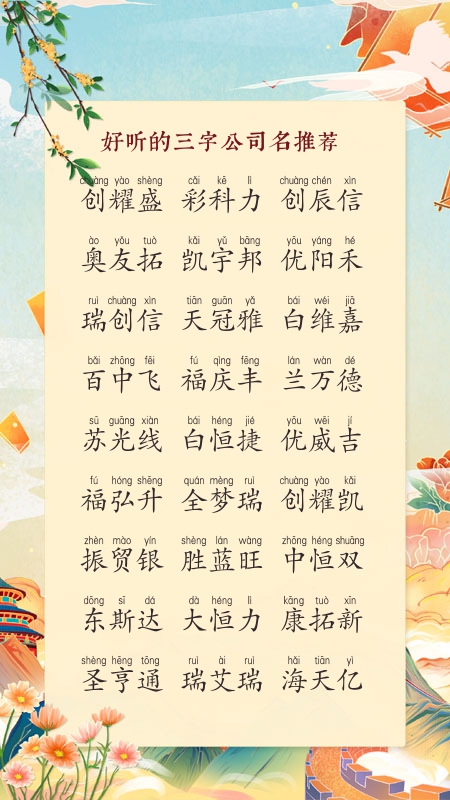 好听的三字公司名推荐
chuàng yào shèng cǎi kē lì chuàng chén xìn
创耀盛 彩科力 创辰信
ào yǒu tuò kǎi yǔ bāng yōu yáng hé
奥友拓 凯宇邦 优阳禾
ruì chuàng xìn tiān guān yǎ bái wéi jiā
瑞创信 天冠雅 白维嘉
bǎi zhōng fēi fú qìng fēng lán wàn dé
百中飞 福庆丰 兰万德
sū guāng xiàn bái héng jié yōu wēi jí
苏光线 白恒捷 优威吉
fú hóng shēng quán mèng ruì chuàng yào kǎi
福弘升 全梦瑞 创耀凯
zhèn mào yín shèng lán wàng zhōng héng shuāng
振贸银 胜蓝旺 中恒双
dōng sī dá dà héng lì kāng tuò xīn
东斯达 大恒力 康拓新
shèng hēng tōng ruì ài ruì hǎi tiān yì
圣亨通 瑞艾瑞 海天亿